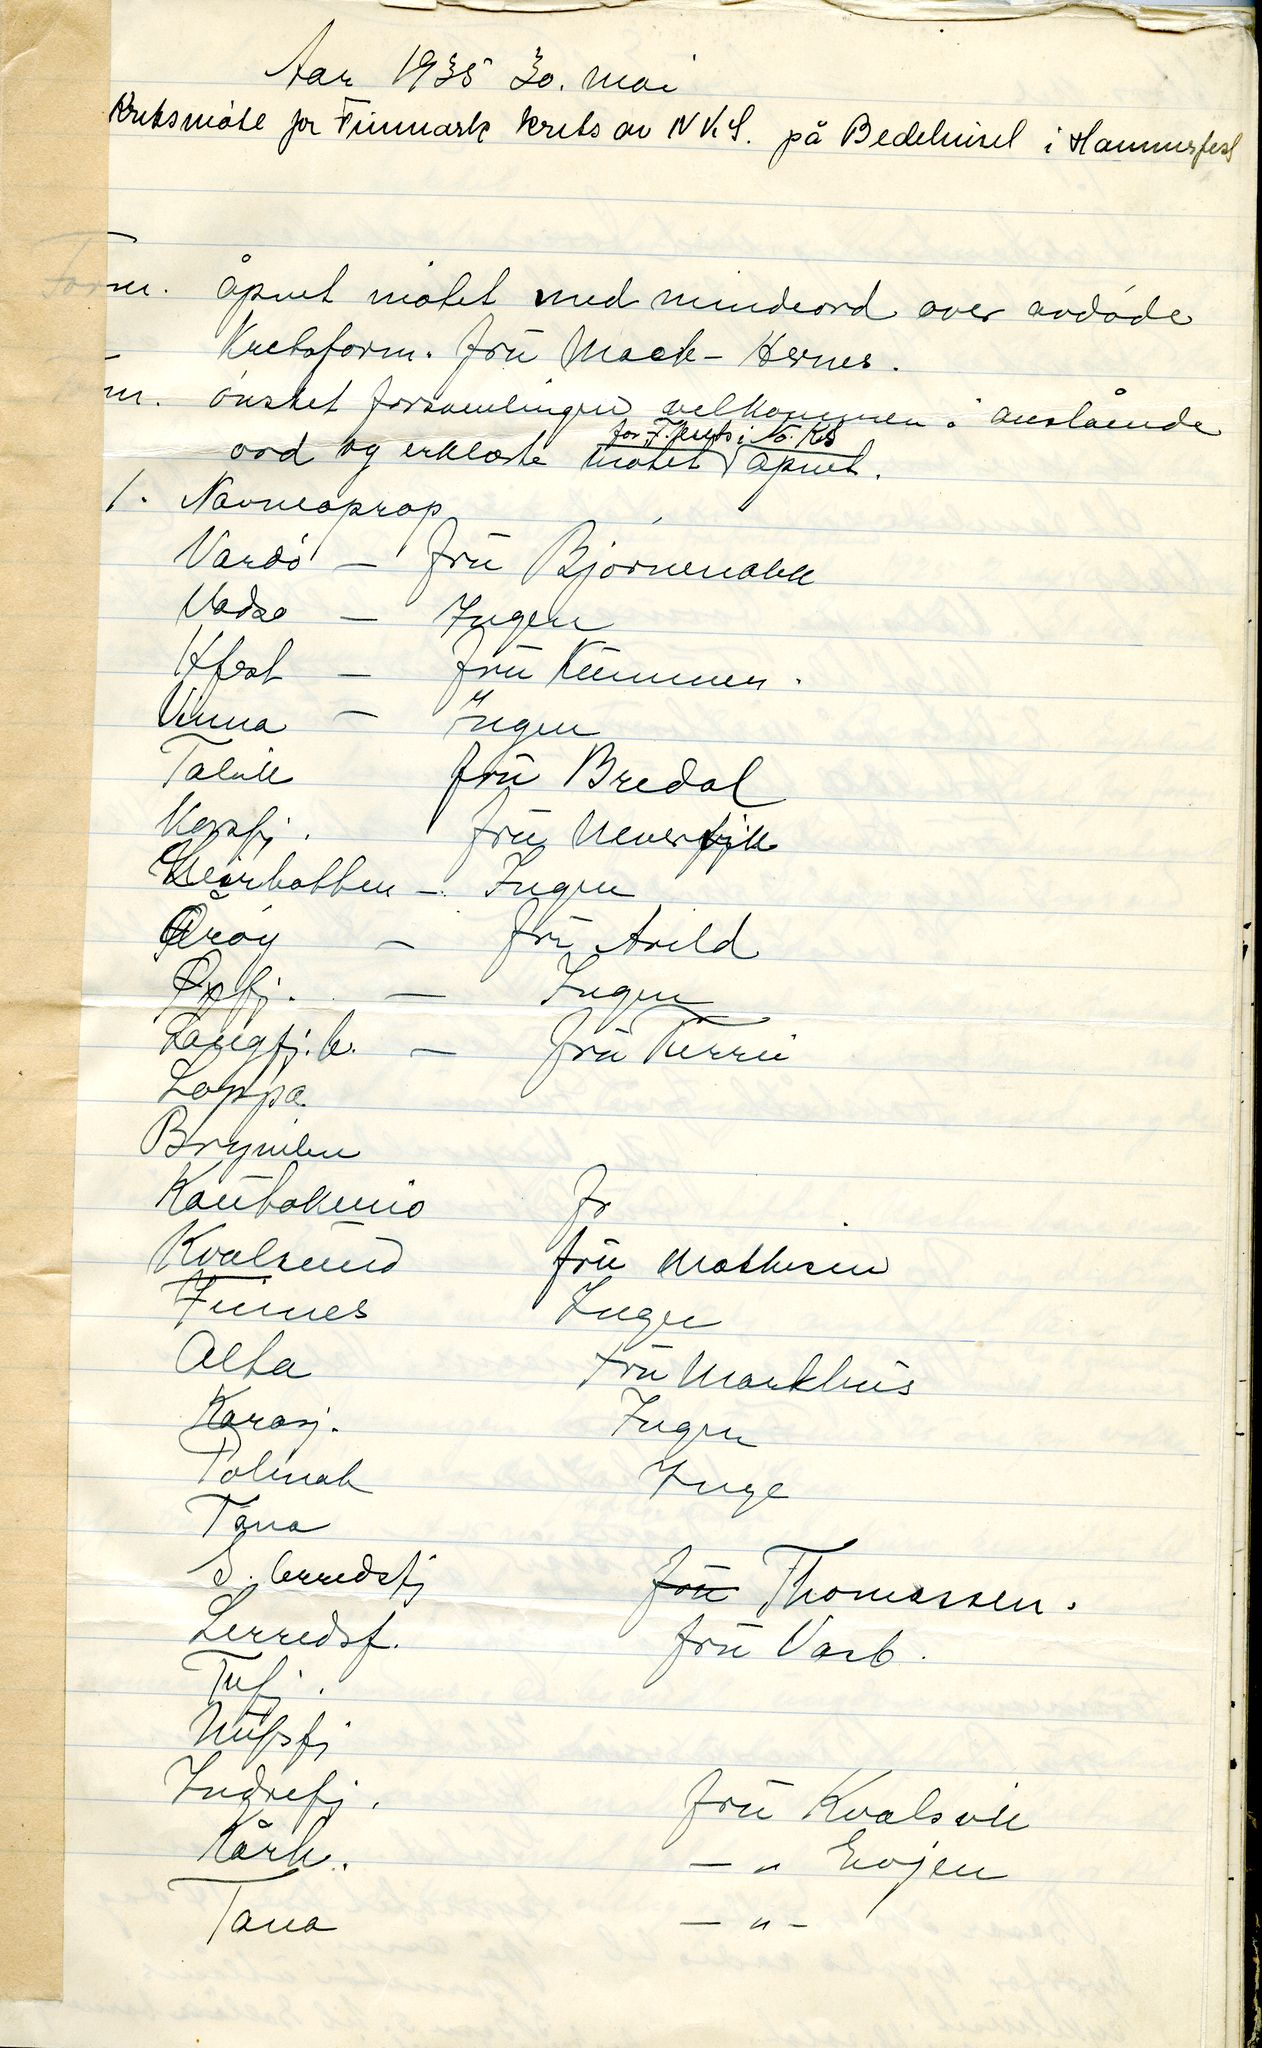 Aar 1935 30. mai
Kretsmöte for Finnmark krets av N.K.S. på Bedehuset i Hammerfest
Form. åpnet mötet med mindeord over avdöde
Kretsform. fru Mack-Hernes.
Form. önsket forsamlingen velkommen i anslående
for F. krets i No. K S
ord og erklærte mötet åpnet.
1. Navneoprop
Vardö - fru Björnebakk
Vadsø - Ingen
Hfest - fru Kummen.
Vinna - Ingen
Talvik fru Bredal
Korsfj. fru Neverfjk
Leirbotten - Ingen
Åröy - fru Arild
Öxfj. - Ingen
Langfj.b. - fru
Loppa
Brynilen
Kautokeino fr
Kvalsund fru Mathisen
Finnes Ingen
Alta fru Markhus
Karasj. Ingen
Polmak Inge
Tana
S. berredsfj fru Thomassen.
Lerredsf. fru Varb.
Tufj.
Nufsfj
Indrefj. fru Kvalsvik
Kårh. - " Evjen
Tana - " -